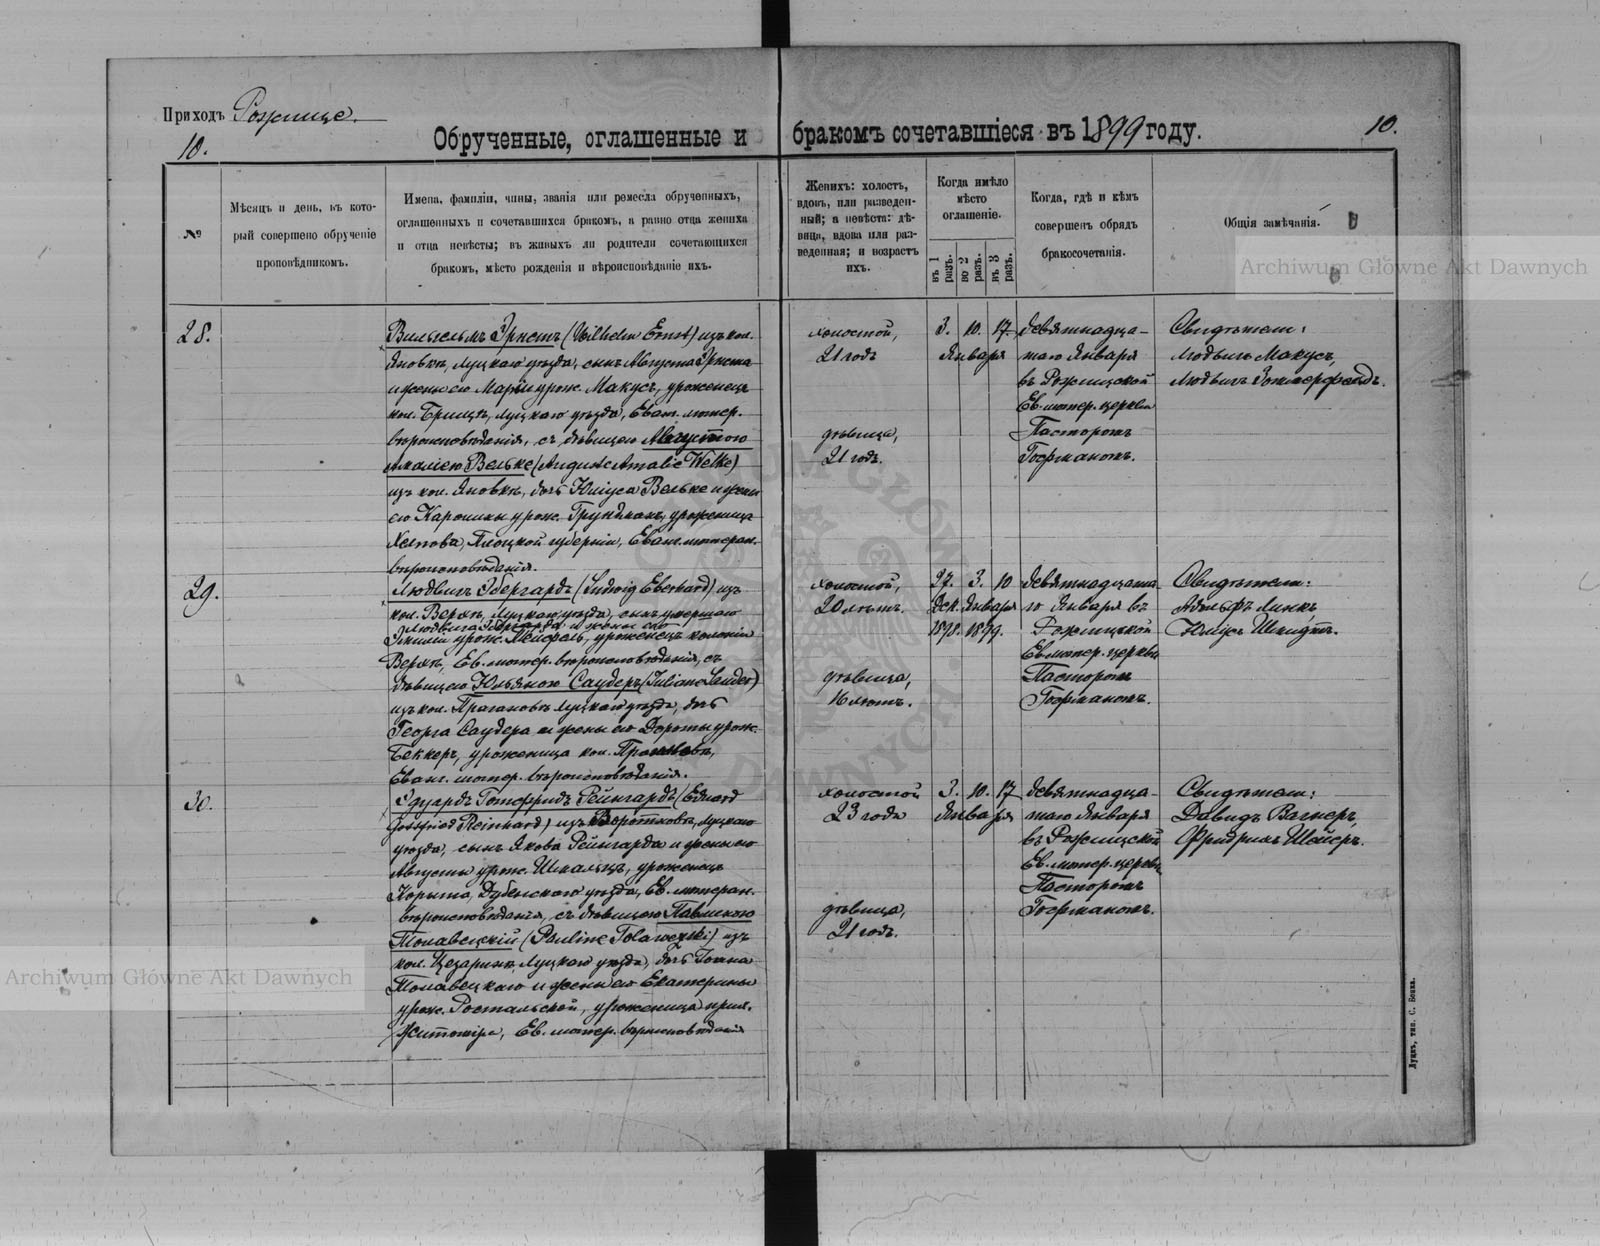 Приходъ Рожище.
10.
Обрученные, оглашенные и бракомъ сочетавшіеся въ 1899 году.
10.
№
Мѣсяцъ и день, въ кото-
рый совершено обрученіе
проповѣдникомъ.
Имена, фамиліи, чины, званія или ремесла обрученныхъ,
оглашенныхъ и сочетавшихся бракомъ, а равно отца жениха
и отца невѣсты; въ живыхъ ли родители сочетающихся
бракомъ, мѣсто рожденія и вѣроисповѣданіе ихъ.
Женихъ: холостъ,
вдовъ, или разведен-
ный; а невѣста: дѣ-
вица, вдова или раз-
веденная; и возрастъ
ихъ.
Когда имѣло
мѣсто
оглашеніе.
въ 1 разъ.
во 2 разъ.
въ 3 разъ.
Когда, гдѣ и кѣмъ
совершенъ обрядъ
бракосочетанія.
Общія замѣчанія.
Archiwum Główne Akt Dawnych
28.
Вильгельмъ Эрнстъ (Wilhelm Ernst) изъ кол.
Яновки, Луцкаго уѣзда, сынъ Августа Эрнста
и жены его Маріи урож. Макусъ, уроженецъ
кол. Брищъ, Луцкаго уѣзда, Еван. лютер.
вѣроисповѣданія, съ дѣвицею Августою
Амаліею Вельке (Auguste Amalie Welke)
изъ кол. Яновки, дочь Юліуса Вельке и жены
его Каролины урож. Грундманъ, уроженица
Плоцкой губерніи, Еванг. лютеран.
вѣроисповѣданія.
холостой,
21 годъ
дѣвица,
21 годъ.
3. 10. 17.
Января
девятнадца-
таго Января
въ Рожищской
Ев. лютер. церкви
Пасторомъ
Гофманомъ.
Свидѣтели:
Людвигъ Макусъ,
Людвигъ Зоммерфельдъ.
29.
Людвигъ Эбергардъ (Ludwig Eberhard) изъ
кол. Верхи, Луцкаго уѣзда, сынъ умершаго
Людвига Эбергарда и жены его
Эмиліи урож. уроженецъ колоніи
Верхи, Ев. лютер. вѣроисповѣданія, съ
дѣвицею Юльяною Саудеръ (Juliane Sauder)
изъ кол. Луцкаго уѣзда, дочь
Георга Саудера и жены его Дороты урож.
Беккеръ, уроженица кол.
Еванг. лютер. вѣроисповѣданія.
холостой,
20 лѣтъ.
дѣвица,
16 лѣтъ.
27. 3. 10
Дек. Января
1898. 1899.
девятнадцата-
го Января въ
Рожищской
Ев. лютер. церкви
Пасторомъ
Гофманомъ.
Свидѣтели:
Адольфъ Линкъ
Юліусъ Шмидтъ.
30.
Эдуардъ Готфридъ Рейнгардъ (Eduard
Gottfried Reinhard) изъ Луцкаго
уѣзда, сынъ Якова Рейнгарда и жены его
Августы урож. Шмальцъ, уроженецъ
Корыта, Дубенскаго уѣзда, Ев. лютеран.
вѣроисповѣданія, съ дѣвицею Павлиною
Толавецкій (Pauline Tolawezki) изъ
кол. Цезаринъ, Луцкаго уѣзда, дочь
Толавецкаго и жены его Екатерины
урож. Ростальской, уроженица
Житоміра, Ев. лютер. вѣроисповѣданія
холостой
23 года
дѣвица,
21 годъ.
3. 10. 17
Января
девятнадца-
таго Января
въ Рожищской
Ев. лютер. церкви
Пасторомъ
Гофманомъ.
Свидѣтели:
Давидъ Вагнеръ,
Фридрихъ Шейеръ.
Archiwum Główne Akt Dawnych
Луцкъ, тип. С. Бокка.